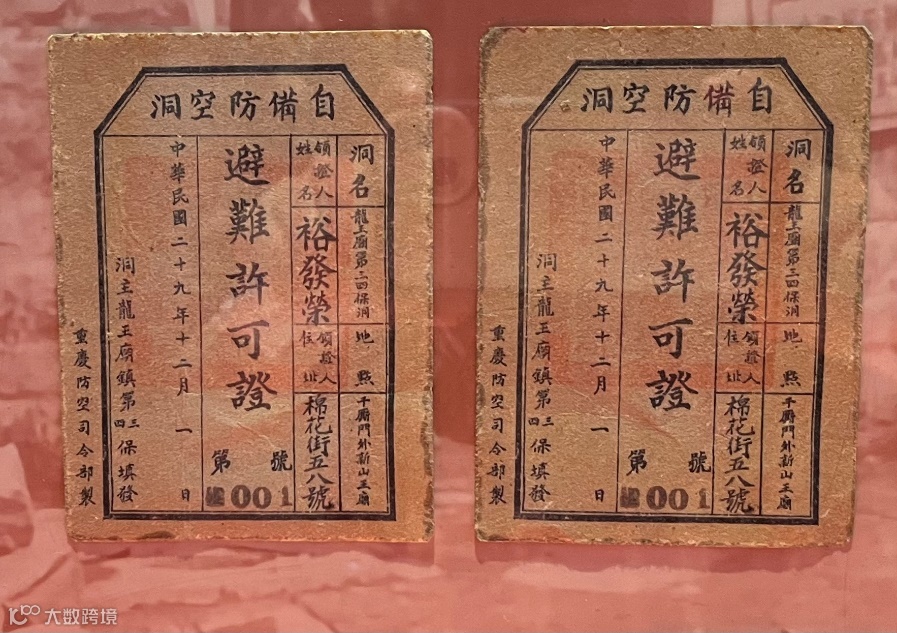 自備防空洞
洞名
龍王廟第三四保洞
地點
千廝門外新山王廟
領證人姓名
裕發榮
領證人住址
棉花街五八號
避難許可證
第 號
001
中華民國二十九年十二月一日
洞主龍王廟鎮第三四保填發
重慶防空司令部製
自備防空洞
洞名
龍王廟第三四保洞
地點
千廝門外新山王廟
領證人姓名
裕發榮
領證人住址
棉花街五八號
避難許可證
第 號
001
中華民國二十九年十二月一日
洞主龍王廟鎮第三四保填發
重慶防空司令部製
大数跨境